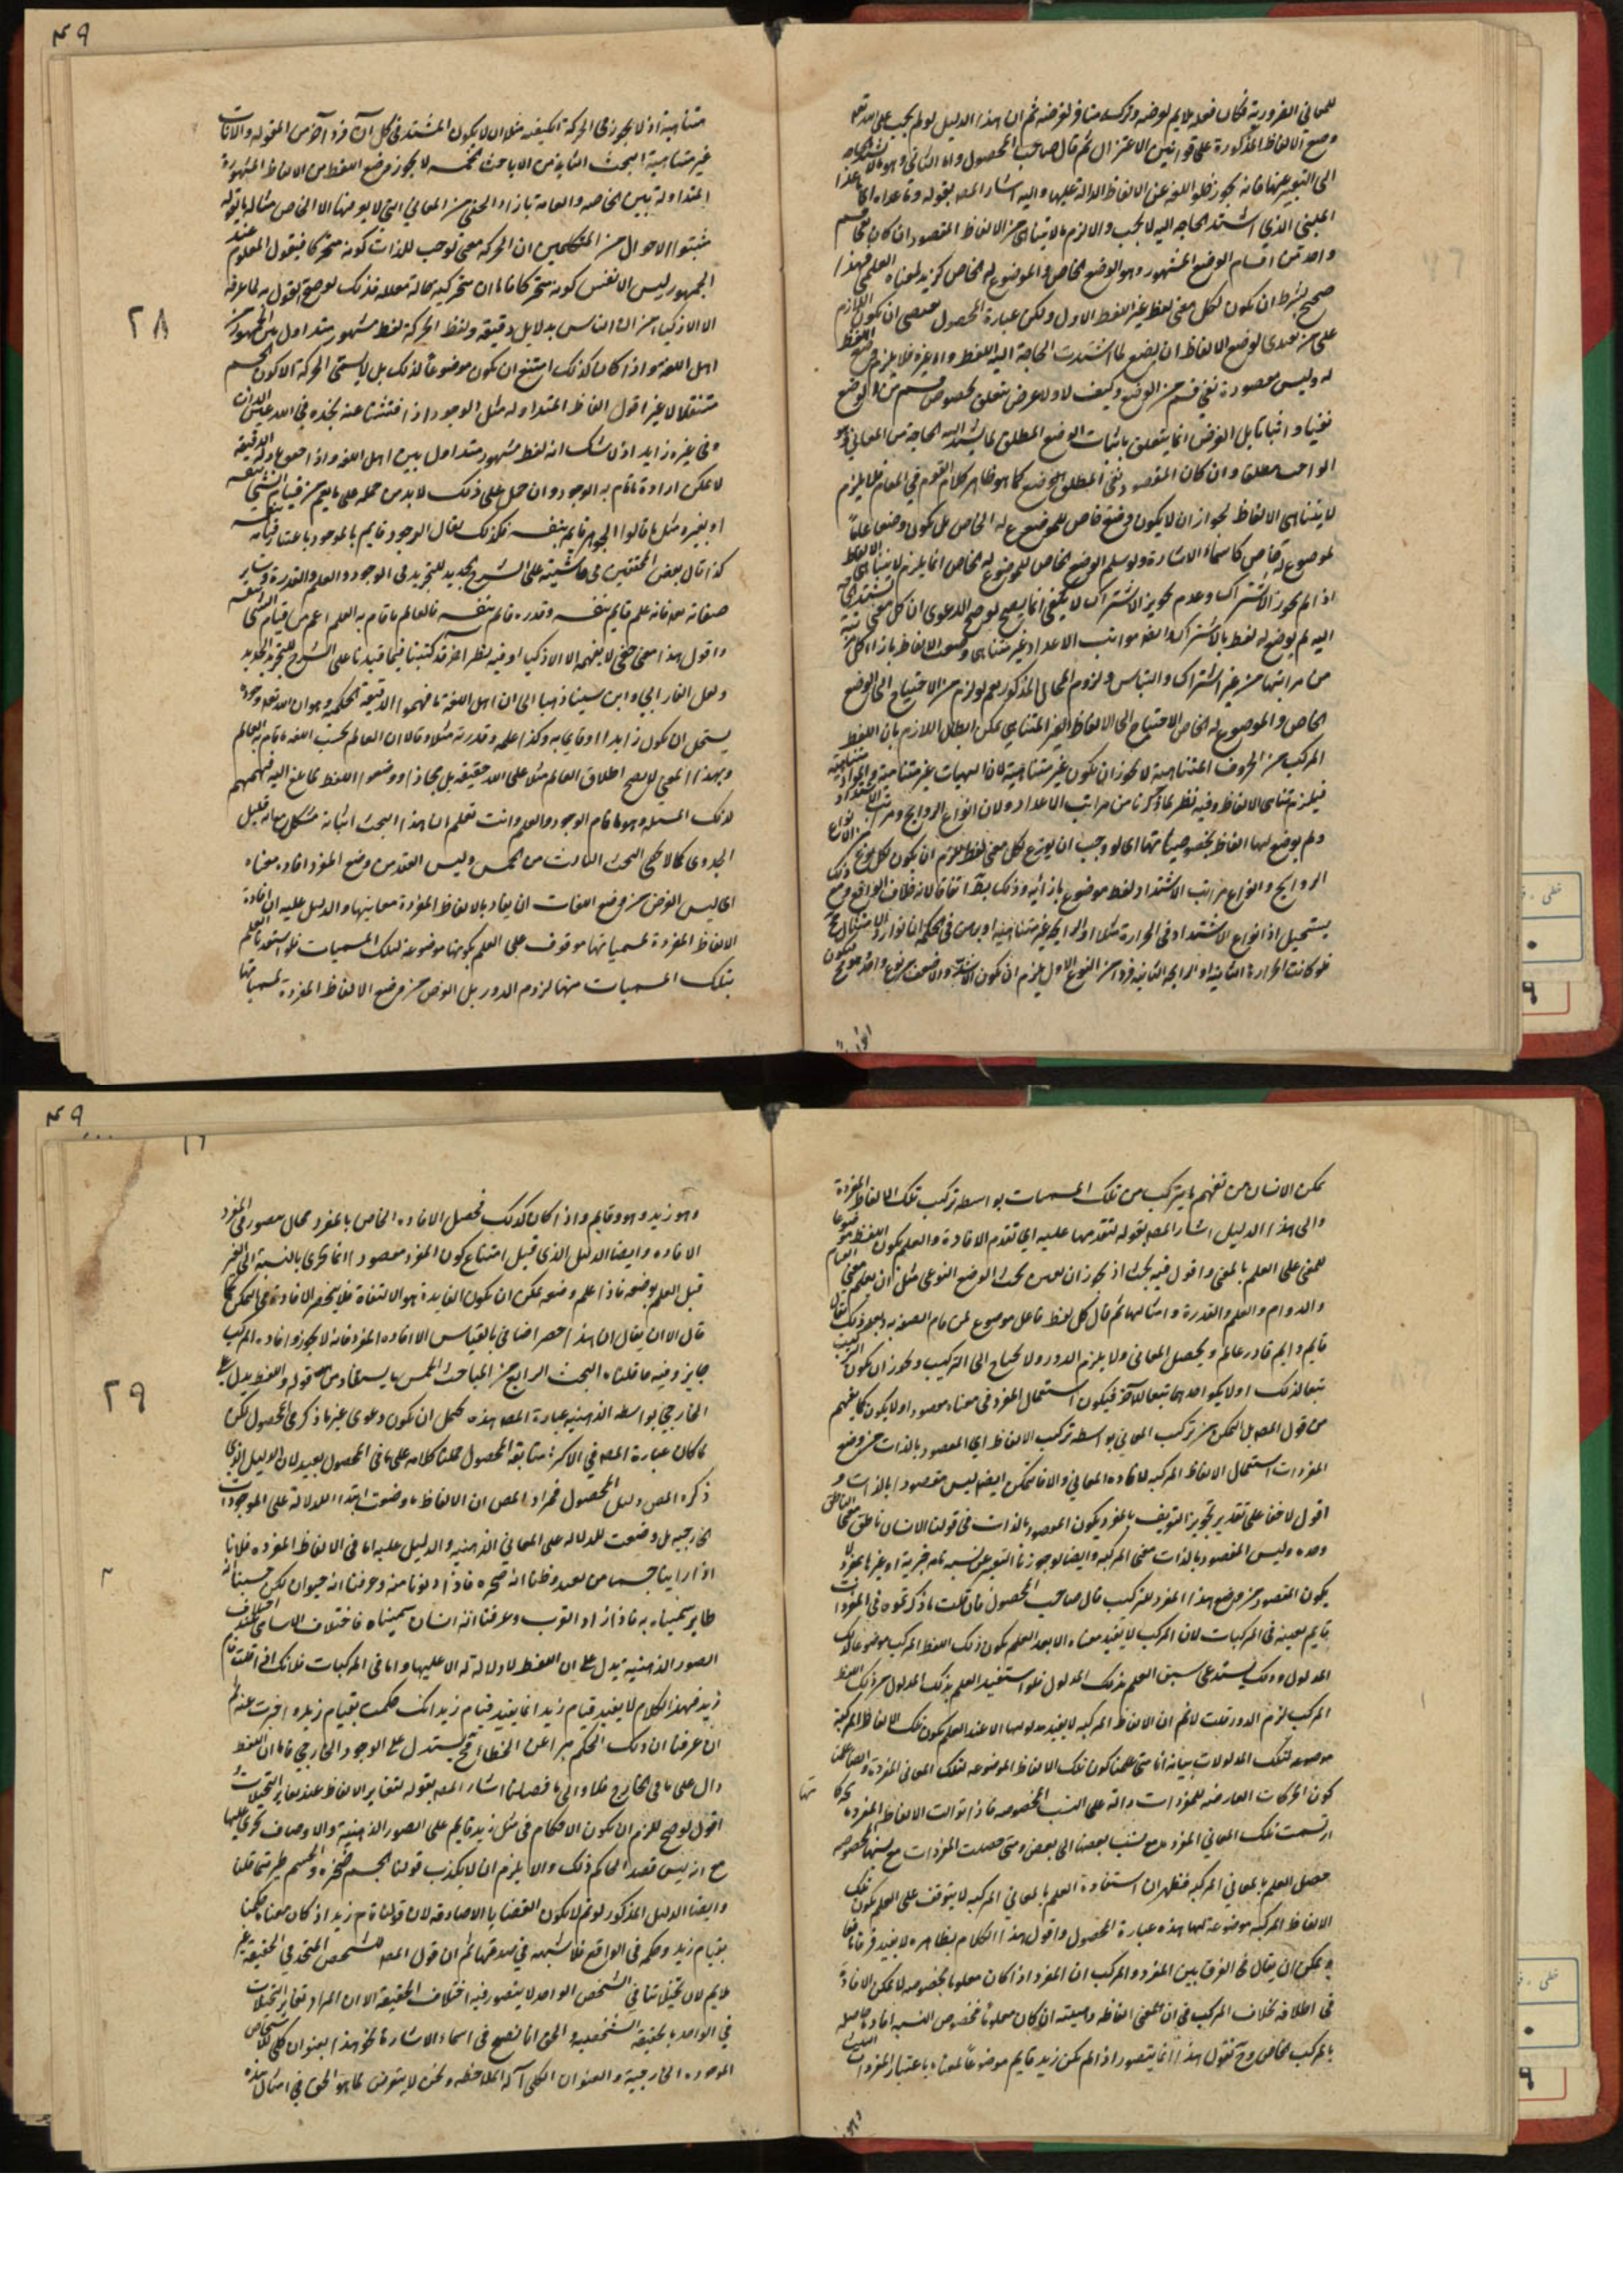 للمعاني الضرورية فكان فعله ملايم لغرضه وتركه منافر لغرضه ثم ان هذا الدليل لو لم يجب على الله تعالى
وضع الالفاظ المذكورة على قوانين الاعتزال ثم قال صاحب المحصول واما الثاني وهو ما لا تشتد الحاجة
الى التعبير عنها فانه يجوز خلو اللغة عن الالفاظ الدالة عليها واليه اشار المصه بقوله وما عداه اي ما عدا
المعنى الذي اشتد الحاجة اليه لا يجب والا لزم ما لا يتناهى من الالفاظ المقصود ان كان
واحد من اقسام الوضع المشهور وهو الوضع الخاص والموضوع له الخاص كزيد لمعناه العلمي فهذا
صحيح بشرط ان يكون لكل معنى لفظ غير اللفظ الاول ولكن عبارة المحصول ان يكون اللازم
على من تصدى لوضع الالفاظ ان يضع لما اشتدت الحاجة اليه اللفظ واما غيره فلا يلزم وضع اللفظ
له وليس مقصوده نفي قسم من الوضع وكيف لا ولا غرض يتعلق بخصوص قسم من الوضع
نفيا واثباتا بل الغرض انما يتعلق باثبات الوضع المطلق لما يشتد اليه الحاجة من المعاني وهو
الواجب مطلقا وان كان المقصود نفي المطلق الوضع كما هو ظاهر كلام القوم في المقام فلا يلزم
لا يتناهى الالفاظ لجواز ان لا يكون وضع خاص للموضوع له الخاص بل يكون وضعا عاما
لموضوع له خاص كاسماء الاشارة ولو سلم الوضع الخاص للموضوع له الخاص انما يلزم لا يتناهى الالفاظ
اذا لم يجوز الاشتراك وعدم تجويز الاشتراك لا يكفي انما يصح لو صح الدعوى ان كل معنى تشتد الحاجة
اليه لم يوضع له لفظ بالاشتراك مراتب الاعداد غير متناهي وضعت الالفاظ بازاء كل مرتبة
من مراتبها من غير اشتراك والتباس ولزوم المحال المذكور نعم لو لزم من الاحتياج الى الوضع
الخاص والموضوع له الخاص الاحتياج الى الالفاظ الغير المتناهي يمكن ابطال اللازم بان اللفظ
المركب من الحروف المتناهية لا يجوز ان يكون غير متناهية لان الهيات غير متناهية والمواد متناهية
فيلزم تناهي الالفاظ وفيه نظر لما ذكرنا من مراتب الاعداد ولان انواع الروايح ومراتب الاشتداد
ولم يوضع لها الفاظ بخصوصياتها اي لو وجب ان يوضع لكل معنى لفظ يلزم ان يكون لكل نوع من انواع
الروايح وانواع مراتب الاشتداد لفظ موضوع بازائه وذلك بط اتفاقا لانه خلاف الواقع ومع ذلك
يستحيل اذ انواع الاشتداد في الحرارة مثلا والرايحة غير متناهية
فلو كانت الحرارة الثانية او الرايحة الثانية فردا من النوع الاول يلزم ان يكون الاشد والاضعف من نوع واحد
٤٩
متناهية اذ لا يجوز في الحركة الكيفية مثلا ان لا يكون المشتد في كل آن فرد آخر من المقولة والآنات
غير متناهية البحث الثاني من الاباحث الخمسه لا يجوز وضع اللفظ من الالفاظ المشهورة
المتداولة بين الخاصه والعامة بازاء الخفي من المعاني التي لا يعرفها الا الخاص مثاله ما يقوله
مثبتوا الاحوال من المتكلمين ان الحركة معنى توجب للذات كونه متحركا فيقول المعلوم عند
الجمهور ليس الا نفس كونه متحركا فاما ان متحركيته حالة معللة فذلك لو صح القول به لما عرفه
الا الاذكياء من الناس بدلايل دقيقة ولفظ الحركة لفظ مشهور متداول بين الجمهور من
اهل اللغة واذا كان كذلك امتنع ان يكون موضوعا لذلك بل لا يسمى الحركة الا كون الجسم
متنقلا لا غير اقول الفاظ المتداوله مثل الوجود اذا فتشنا عنه نجده في الله عين الذات
وفي غيره زايد اذ لا شك انه لفظ مشهور متداول بين اهل اللغة
لا يمكن ارادة ما قام به الوجود وان حمل على ذلك لا بد من حمله على ما يعم من قيام الشي بنفسه
او بغيره مثل ما قالوا الجوهر قايم بنفسه فكذلك يقال الوجود قايم بالموجود باعتبار قيامه
كذا قال بعض المحققين في حاشيته على الشرح الجديد للتجريد في الوجود والعلم والقدرة وساير
صفاته تعالى فانه علم قايم بنفسه وقدره قايم بنفسه فالعالم ما قام به العلم اعم من قيام الشي بنفسه
واقول هذا معنى خفي لا يفهمه الا الاذكياء وفيه نظر آخر قد كتبنا فيما قيدنا على الشرح الجديد للتجريد
ولعل الفارابي وابن سينا ذهبا الى ان اهل اللغة ما فهموا الدقيقة الحكمية وهو ان الله تعالى وجوده
يستحيل ان يكون زايدا او قايما به وكذا علمه وقدرته مثلا وقالا ان العالم بحسب اللغة ما قام به العلم
وبهذا المعنى لا يصح اطلاق العالم مثلا على الله حقيقة بل مجازا ووضعوا اللفظ لما بلغ اليه فهمهم
لذلك المسئله وهو ما قام الوجود والعلم وانت تعلم ان هذا البحث اثباته مشكل مع انه قليل
الجدوى كما لا يخفى البحث الثالث من الخمس وليس القصد من وضع المفرد افادة معناه
اي ليس الغرض من وضع اللغات ان يفاد بالالفاظ المفردة معانيها والدليل عليه ان افادة
الالفاظ المفردة لمسمياتها موقوف على العلم بكونها موضوعة لتلك المسميات فلو استفيد العلم
بتلك المسميات منها لزوم الدور بل الغرض من وضع الالفاظ المفردة لمسمياتها
٢٨
يمكن الانسان من تفهم ما يتركب من تلك المسميات بواسطه تركيب تلك الالفاظ المفردة
والى هذا الدليل اشار المصه بقوله لتقدمها عليه اي تقدم الافادة والعلم بكون اللفظ موضوعا
للمعنى على العلم بالمعنى واقول فيه بحث اذ يجوز ان تحت الوضع النوعي مثل ان يعلم معنى العام
والدوام والعلم والقدرة وامثالها ثم قال كل لفظ فاعل موضوع لمن قام الصفة به وبعد ذلك يقال
قايم دايم قادر عالم ويحصل المعاني ولا يلزم الدور ولا يحتاج الى التركيب ويجوز ان يكون التركيب
تبعا لذلك او لا يكون احدهما تبعا للآخر فيكون استعمال المفرد في معناه مقصودا ولا يكون كما يفهم
من قول المصه بل التمكن من تركيب المعاني بواسطه تركيب الالفاظ اي المقصود بالذات من وضع
المفردات استعمال الالفاظ المركبه لافاده المعاني والافاتمكن ايضا ليس مقصودا بالذات و
اقول لا خفا على تقدير تجويز التعريف بالمفرد يكون المقصود بالذات في قولنا الانسان ناطق معنى الناطق
وحده وليس المقصود بالذات معنى المركبه وايضا لو جوزنا التعبير عن نسبه تامه خبرية او غيرها بمفرد لا
يكون المقصود من وضع هذا المفرد للتركيب قال صاحب المحصول فان قلت ما ذكرتموه في المفردات
قايم بعينه في المركبات لان المركب لا يفيد معناه الا بعد العلم بكون ذلك اللفظ المركب موضوعا لذلك
المدلول وذلك يستدعي سبق العلم بذلك المدلول فلو استفيد العلم بذلك المدلول من ذلك اللفظ
المركب لزم الدور قلت لا نم ان الالفاظ المركبه لا يفيد مدلولها الا عند العلم بكون تلك الالفاظ المركبة
موضوعه لتلك المدلولات بيانه انا متى علمنا كون تلك الالفاظ الموضوعه لتلك المعاني المفردة وايضا علمنا
كون الحركات العارضه للمفردات دالة على النسب المخصوصه فاذا توالت الالفاظ المفردة بحركاتها
ارتسمت تلك المعاني المفرد مع نسب بعضها الى بعض ومتى حصلت المفردات مع نسبها المخصوصه
حصل العلم بالمعاني المركبه فظهر ان استفادة العلم بالمعاني المركبه لا يتوقف على العلم بكون تلك
الالفاظ المركبه موضوعة لها هذه عبارة المحصول واقول هذا الكلام بظاهره لا يفيد فرقا نعم
يمكن ان يقال في الفرق بين المفرد والمركب ان المفرد اذا كان معلوما بخصوصه لا يمكن الافادة
في اطلاقه بخلاف المركب فان معنى الفاظه وهيئته ان كان معلوما فخصوص النسبه افادة حاصله
بالمركب الخاص وح نقول هذا انما يتصور اذا لم يكن زيد قايم موضوعا لمعناه باعتبار المفردات الثلث
وهو زيد
٤٩
وهو زيد وهو وقايم واذا كان كذلك فحصل الافاده الخاص بالمفرد محال مقصور في المفرد
الافاده وايضا الدليل الذي قيل امتناع كون المفرد مقصودا انما يجري بالنسبة الى الغير
قبل العلم بوضعه فاذا علم وضعه يمكن ان يكون الفايدة هو الالتفات فلا ينحصر الافاده في التمكن كما
قال الا ان يقال ان هذا حصر اضافي بالقياس الا افاده المفرد فانه لا يجوز وافاده المركب
جايز وفيه ما قلناه البحث الرابع من المباحث الخمس ما يستفاد من قوله واللفظ يدل على
الخارجي بواسطه الذهنيه عبارة المصه هذه يحتمل ان يكون دعوى غير ما ذكر في المحصول لكن
لما كان عبارة المصه في الاكثر متابعة المحصول حملنا كلامه على ما في المحصول بعيد لان الدليل الذي
ذكره المص دليل المحصول فمراد المص ان الالفاظ ما وضعت ابتداء للدلالة على الموجودات
الخارجيه بل وضعت للدلاله على المعاني الذهنيه والدليل عليه اما في الالفاظ المفرده فلانا
اذا راينا جسما من بعيد وظنناه انه صخره فاذا دنونا منه وعرفنا انه حيوان لكن حسبناه
طاير سميناه به فاذا زاد القرب وعرفنا انه انسان سميناه فاختلاف الاسامي عند اختلاف
الصور الذهنيه يدل على ان اللفظ لا دلالة له الا عليها واما في المركبات فلانك اذا قلت قام
زيد فهذا الكلام لا يفيد قيام زيد انما يفيد قيام زيد انك حكمت بقيام زيد واخبرت عنه ثم
ان عرفنا ان ذلك الحكم مبرا عن الخطا فح يستدل على الوجود الخارجي فاما ان اللفظ
دال على ما في الخارج فلا والى ما فصلنا اشار المصه بقوله لتغاير الالفاظ عند تغاير التخيلات
اقول لو صح للزم ان يكون الاحكام في مثل زيد قايم على الصور الذهنية والاوصاف يجري عليها
مع انه ليس قصد الحاكم ذلك والا يلزم ان لا يكذب قولنا الجسم صخره والجسم طير متى قلنا
وايضا الدليل المذكور لو تم لا يكون القضايا الا صادقه لان قولنا قام زيد اذ كان معناه حكمنا
بقيام زيد وحكمه في الواقع فلا شبهه في صدقها ثم ان قول المصه للشخص المتحد في الحقيقة غير
ملايم لان تخيلاتنا في الشخص الواحد لا يتصور فيه اختلاف الحقيقة الا ان المراد تغاير التخيلات
في الواحد بالحقيقه الشخصيه والحق انما يصح في اسماء الاشارة نحو هذا بعنوان كلي للاشخاص
الموجوده الخارجية والعنوان الكلي آلة الملاحظه ونحن لا يتعرض لما هو الحق في امثال هذه
٢٩